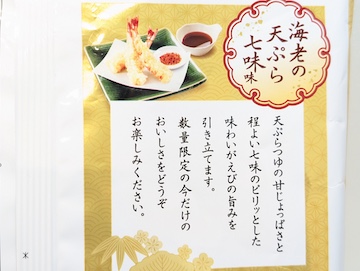 海老の
天ぷら
七味味
天ぷらつゆの甘じょっぱさと
程よい七味のピリッとした
味わいがえびの旨みを
引き立てます。
数量限定の今だけの
おいしさをどうぞ
お楽しみください。
米